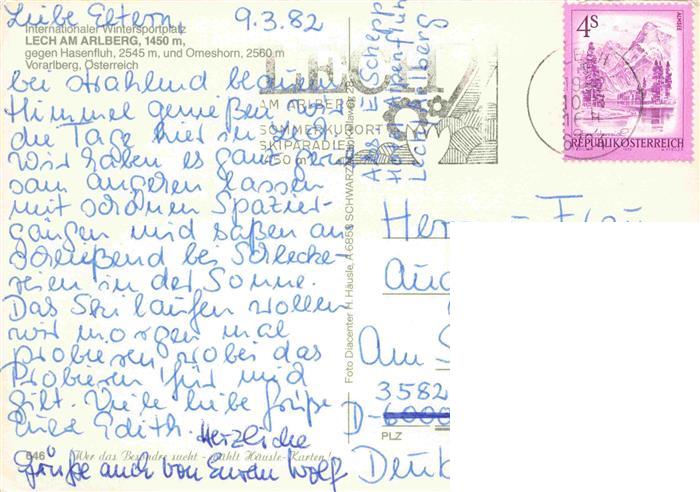 Liebe Eltern, 9.3.82
Internationaler Wintersportplatz
LECH AM ARLBERG, 1450 m,
gegen Hasenfluh, 2545 m, und Omeshorn, 2560 m
Vorarlberg, Österreich
bei strahlend blauem
Himmel genießen wir
die Tage hier in Lech
Wir haben es ganz gem
sam angehen lassen
mit schönen Spazier-
gängen und saßen an
schließend bei Schlecke-
reien in der Sonne.
Das Skilaufen wollen
wir morgen mal
probieren wobei das
Probieren für mich
gilt. Viele liebe Grüße
Eure Edith.
Herzliche
Grüße auch von Eurem Wolf
646 Wer das Besondre sucht - wählt Häusle-Karten!
Foto Diacenter H. Häusle, A 6858 SCHWARZACH
LECH
AM ARLBERG
SOMMERKURORT
SKIPARADIES
1450 m
Lech Arlberg
4S
ALMSEE
REPUBLIK ÖSTERREICH
Herrn - Frau
Am
3582
D-6000
PLZ